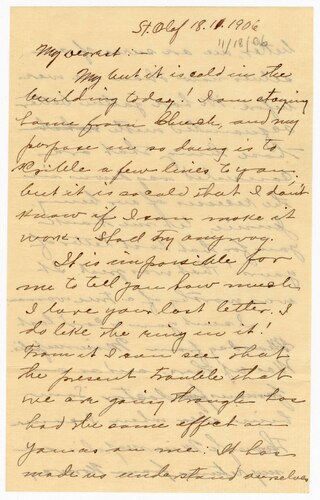 St. Olof 18. 11. 1906
11/18/06
My dearest:-
My but it is cold in the
building today! I am staying
home from Church, and my
purpose in so doing is to
scribble a few lines to you.
but it is so cold that I don't
know if I can make it
work. Shad try anyway.
It is impossible for
me to tell you how much
I love your last letter. I
do like the ring in it!
From it I can see that
the present trouble that
we are going through has
had the same effect on
you as on me: It has
made us understand ourselves